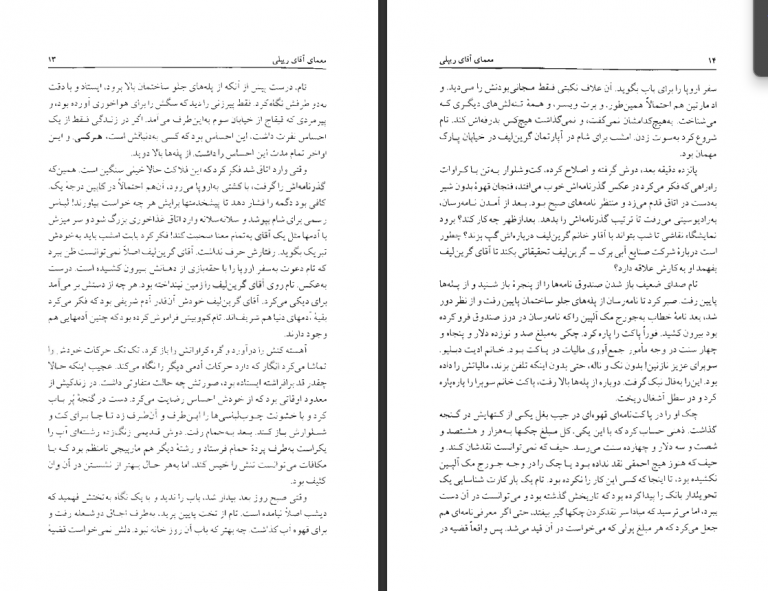 معمای آقای ریپلی ۱۳
تام، درست پیش از آنکه از پله‌های جلو ساختمان بالا برود، ایستاد و با دقت
به‌دو طرفش نگاه کرد. فقط پیرزنی را دید که سگش را برای هواخوری آورده بود، و
پیرمردی که قیقاج از خیابان سوم به‌این‌طرف می‌آمد. اگر در زندگی فقط از یک
احساس نفرت داشت، این احساس بود که کسی به‌دنبالش است، هرکسی. و این
اواخر تمام مدت این احساس را داشت. از پله‌ها بالا دوید.
وقتی وارد اتاق شد فکر کرد که این فلاکت حالا خیلی سنگین است. همین‌که
گذرنامه‌اش را گرفت، با کشتی به‌اروپا می‌رود، آن‌هم احتمالاً در کابین درجهٔ یک.
کافی بود دگمه را فشار دهد تا پیشخدمتها برایش هر چه خواست بیاورند! لباس
رسمی برای شام بپوشد و سلانه‌سلانه وارد اتاق غذاخوری بزرگ شود و سر میزش
با آدمها مثل یک آقای به‌تمام معنا صحبت کند! فکر کرد بابت امشب باید به‌خودش
تبریک بگوید. رفتارش حرف نداشت. آقای گرین‌لیف اصلاً نمی‌توانست ظن ببرد
که تام دعوت به‌سفر اروپا را با حقه‌بازی از دهانش بیرون کشیده است. درست
به‌عکس. تام روی آقای گرین‌لیف را زمین نینداخته بود. هر چه از دستش بر می‌آمد
برای دیکی می‌کرد. آقای گرین‌لیف خودش آن‌قدر آدم شریفی بود که فکر می‌کرد
بقیهٔ آدمهای دنیا هم شریف‌اند. تام کم‌وبیش فراموش کرده بود که چنین آدمهایی هم
وجود دارند.
آهسته کتش را درآورد و گره کراواتش را باز کرد، تک‌تک حرکات خودش را
تماشا می‌کرد انگار که دارد حرکات آدمی دیگر را نگاه می‌کند. عجیب اینکه حالا
چقدر قد برافراشته ایستاده بود، صورتش چه حالت متفاوتی داشت. در زندگیش از
معدود اوقاتی بود که از خودش احساس رضایت می‌کرد. دست در گنجهٔ پُر باب
کرد و با خشونت چوب‌لباسی‌ها را این‌طرف و آن‌طرف زد تا جا برای کت و
شلوارش باز کند. بعد به‌حمام رفت. دوش قدیمی زنگ‌زده رشته‌ای آب را
یکراست به‌طرف پردهٔ حمام فرستاد و رشتهٔ دیگر هم مارپیچی نامنظم بود که با
مکافات می‌توانست تنش را خیس کند. اما به‌هر حال بهتر از نشستن در آن وان
کثیف بود.
وقتی صبح روز بعد بیدار شد، باب را ندید و با یک نگاه به‌تختش فهمید که
دیشب اصلاً نیامده است. تام از تخت پایین پرید، به‌طرف اجاق دوشعله رفت و
برای قهوه آب گذاشت. چه بهتر که باب آن روز خانه نبود. دلش نمی‌خواست قضیهٔ
۱۴ معمای آقای ریپلی
سفر اروپا را برای باب بگوید. آن علاف نکبتی فقط مجانی‌بودنش را می‌دید. و
اد مارتین هم احتمالاً همین‌طور، و برت ویسر، و همهٔ تنه‌لش‌های دیگری که
می‌شناخت. به‌هیچ‌کدامشان نمی‌گفت، و نمی‌گذاشت هیچ‌کس بدرقه‌اش کند. تام
شروع کرد به‌سوت زدن. امشب برای شام در آپارتمان گرین‌لیف در خیابان پارک
مهمان بود.
پانزده دقیقه بعد، دوش گرفته و اصلاح کرده، کت‌وشلوار به‌تن با کراوات
راه‌راهی که فکر می‌کرد در عکس گذرنامه‌اش خوب می‌افتد، فنجان قهوهٔ بدون شیر
به‌دست در اتاق قدم می‌زد و منتظر نامه‌های صبح بود. بعد از آمدن نامه‌رسان،
به‌رادیوسیتی می‌رفت تا ترتیب گذرنامه‌اش را بدهد. بعدازظهر چه کار کند؟ برود
نمایشگاه نقاشی تا شب بتواند با آقا و خانم گرین‌لیف درباره‌اش گپ بزند؟ چطور
است دربارهٔ شرکت صنایع آبی برک ـ گرین‌لیف تحقیقاتی بکند تا آقای گرین‌لیف
بفهمد او به‌کارش علاقه دارد؟
تام صدای ضعیف باز شدن صندوق نامه‌ها را از پنجرهٔ باز شنید و از پله‌ها
پایین رفت. صبر کرد تا نامه‌رسان از پله‌های جلو ساختمان پایین رفت و از نظر دور
شد، بعد نامهٔ خطاب به‌جورج مک آلپین را که نامه‌رسان در درز صندوق فرو کرده
بود بیرون کشید. فوراً پاکت را پاره کرد. چکی به‌مبلغ صد و نوزده دلار و پنجاه و
چهار سنت در وجه مأمور جمع‌آوری مالیات در پاکت بود. خانم ادیت دبلیو.
سوپرای عزیز نازنین! بدون نک و ناله، حتی بدون اینکه تلفن بزند، مالیاتش را داده
بود. این‌را به‌فال نیک گرفت. دوباره از پله‌ها بالا رفت، پاکت خانم سوپرا را پاره‌پاره
کرد و در سطل آشغال ریخت.
چک او را در پاکت‌نامه‌ای قهوه‌ای در جیب بغل یکی از کتهایش در گنجه
گذاشت. ذهنی حساب کرد که با این یکی، کل مبلغ چکها به‌هزار و هشتصد و
شصت و سه دلار و چهارده سنت می‌رسد. حیف که نمی‌توانست نقدشان کند. و
حیف که هنوز هیچ احمقی نقد نداده بود یا چک را در وجه جورج مک آلپین
نکشیده بود، تا اینجا که کسی این کار را نکرده بود. تام یک بار کارت شناسایی یک
تحویلدار بانک را پیدا کرده بود که تاریخش گذشته بود و می‌توانست در آن دست
ببرد، اما می‌ترسید که مبادا سر نقدکردن چکها گیر بیفتد، حتی اگر معرفی‌نامه‌ای هم
جعل می‌کرد که هر مبلغ پولی که می‌خواست در آن قید می‌شد. پس واقعاً قضیه در